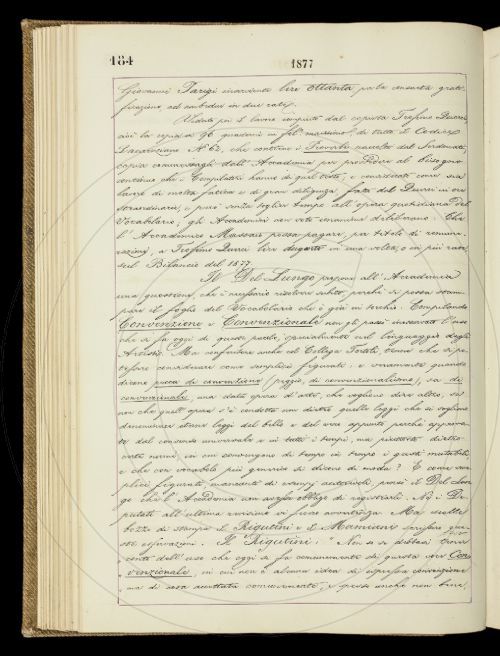 184
1877
Giovanni Tarigi lire ottanta per la grati-
ficazione, ed in due rate.
Veduto poi il lavoro compiuto dal copista Trofimo Ducci,
cioè la copia in 96 quaderni in fol. massimo di tutto il Codice
Laurenziano N. 62, che contiene i Proverbi raccolti dal Serdonati,
copia dall'Accademia per provvedere al bisogno
continuo che i Compilatori hanno di quel testo; e considerato come sia
lavoro di molta fatica e di gran diligenza fatto dal Ducci in ore
straordinarie, e però senza toglier tempo all'opera quotidiana del
Vocabolario; gli Accademici con voto unanime deliberano: Che
l'Accademico Massaio possa pagare, per titolo di remune-
razione, a Trofimo Ducci lire dugento in una volta, o in più rate
sul Bilancio del 1877.
Il Del Lungo propone all'Accademia
una questione, che è necessario risolvere subito, perchè si possa stam-
pare il foglio del Vocabolario che è già in torchio. Compilando
Convenzione e Convenzionale non gli parve l'uso
che si fa oggi di queste parole, specialmente nel linguaggio degli
Artisti. Ma conferitone anche col Collega Tortoli, venne che si po-
tessero considerare come semplici figurati: e veramente quando
dicono pecca di convenzione (peggio, di convenzionalismo), sa di
convenzionale, una data opera d'arte, che vogliono dire altro, se
non che quell'opera s'è condotta non dietro quelle leggi che si vogliono
denominare eterne leggi del bello e del vero appunto perchè approva-
te dal consenso universale e in tutti i tempi, ma piuttosto dietro
certe norme in cui convengono di tempo in tempo i gusti mutabili
e che con vocabolo più generico si dicono di moda? E come sem-
plici figurati, mancanti di esempj autorevoli, parve il Del Lun-
go che l'Accademia non avesse obbligo di registrarli. Nè i De-
putati all'ultima revisione vi fecero avvertenza. Ma sulle
bozze di stampa il Rigutini e il Mamiani scrissero que-
ste osservazioni. Il Rigutini: "Non so se debbasi tener
conto dell'uso che oggi si fa comunemente di questa voce Con-
venzionale, in cui non è alcuna idea di espressa convenzione
ma di cosa accettata comunemente, e spesso anche non bene,